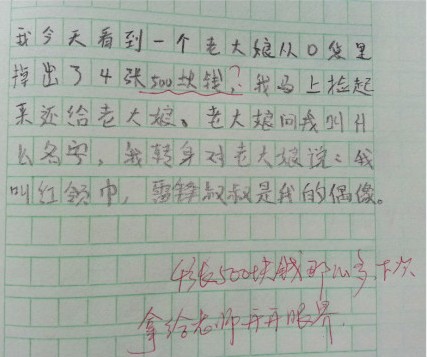 我今天看到一个老大娘从口袋里
掉出了4张500块钱,我马上捡起
来还给老大娘。老大娘问我叫什
么名字,我转身对老大娘说:我
叫红领巾,雷锋叔叔是我的偶像。
?
4张500块钱那么多,下次
拿给老师开开眼界。